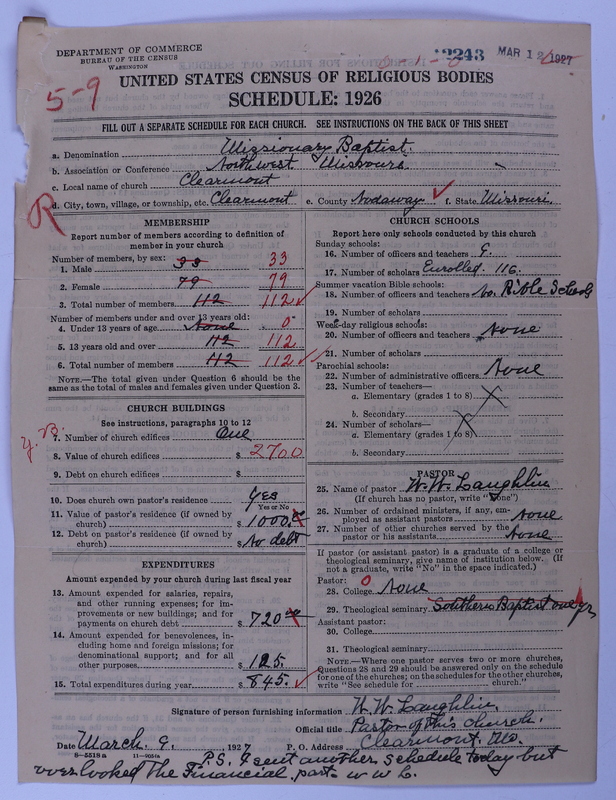 DEPARTMENT OF COMMERCE
BUREAU OF THE CENSUS
WASHINGTON
2243 MAR 12 1927
5-9
UNITED STATES CENSUS OF RELIGIOUS BODIES
SCHEDULE: 1926
FILL OUT A SEPARATE SCHEDULE FOR EACH CHURCH. SEE INSTRUCTIONS ON THE BACK OF THIS SHEET
a. Denomination Missionary Baptist.
b. Association or Conference Northwest Missouri.
c. Local name of church Clearmont
d. City, town, village, or township, etc. Clearmont e. County Nodaway f. State Missouri.
R
MEMBERSHIP
Report number of members according to definition of
member in your church
Number of members, by sex:
1. Male 33 33
2. Female 79 79
3. Total number of members 112 112
Number of members under and over 13 years old:
4. Under 13 years of age None 0
5. 13 years old and over 112 112
6. Total number of members 112 112
NOTE.—The total given under Question 6 should be the
same as the total of males and females given under Question 3.
CHURCH BUILDINGS
See instructions, paragraphs 10 to 12
Y.B.
7. Number of church edifices One
8. Value of church edifices $ 2700
9. Debt on church edifices $
10. Does church own pastor's residence Yes
Yes or No
11. Value of pastor's residence (if owned by
church) $ 1000.
12. Debt on pastor's residence (if owned by
church) $ No debt
EXPENDITURES
Amount expended by your church during last fiscal year
13. Amount expended for salaries, repairs,
and other running expenses; for im-
provements or new buildings; and for
payments on church debt $ 720
14. Amount expended for benevolences, in-
cluding home and foreign missions; for
denominational support; and for all
other purposes $ 125.
15. Total expenditures during year $ 845.
CHURCH SCHOOLS
Report here only schools conducted by this church
Sunday schools:
16. Number of officers and teachers 9.
17. Number of scholars Enrolled. 116.
Summer vacation Bible schools:
18. Number of officers and teachers No. Bible School
19. Number of scholars
Week-day religious schools:
20. Number of officers and teachers None
21. Number of scholars
Parochial schools:
22. Number of administrative officers None
23. Number of teachers—
a. Elementary (grades 1 to 8)
b. Secondary
24. Number of scholars—
a. Elementary (grades 1 to 8)
b. Secondary
PASTOR
25. Name of pastor W.W. Laughlin
(If church has no pastor, write "None")
26. Number of ordained ministers, if any, em-
ployed as assistant pastors None
27. Number of other churches served by the
pastor or his assistants None
If pastor (or assistant pastor) is a graduate of a college or
theological seminary, give name of institution below. (If
not a graduate, write "No" in the space indicated.)
Pastor:
28. College 0 None
29. Theological seminary Southern Baptist one yr
Assistant pastor:
30. College
31. Theological seminary
NOTE.—Where one pastor serves two or more churches,
Questions 28 and 29 should be answered only on the schedule
for one of the churches; on the schedules for the other churches,
write "See schedule for church."
Signature of person furnishing information W. W. Laughlin
Official title Pastor of this church.
Date March. 9, 1927 P. O. Address Clearmont. Mo.
8—5518 a 11—9051a
P.S. I sent another schedule today but
overlooked the Financial. part. W W L.